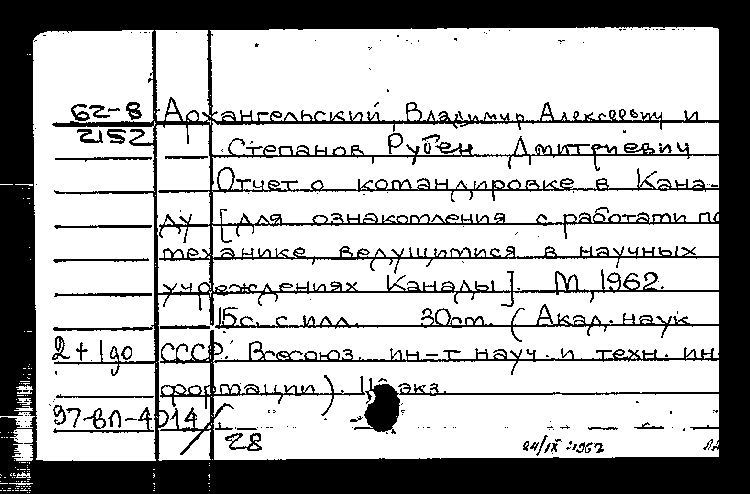 62-8 Архангельский, Владимир Алексеевич и
2152
Степанов, Рубен Дмитриевич
Отчет о командировке в Кана-
ду [для ознакомления с работами по
механике, ведущимися в научных
учреждениях Канады]. М, 1962.
15с. с илл. 30см. (Акад. наук
2+1до СССР. Всесоюз. ин-т науч. и техн. ин
формации). экз.
97-вл-4014
28
24/IX 1962